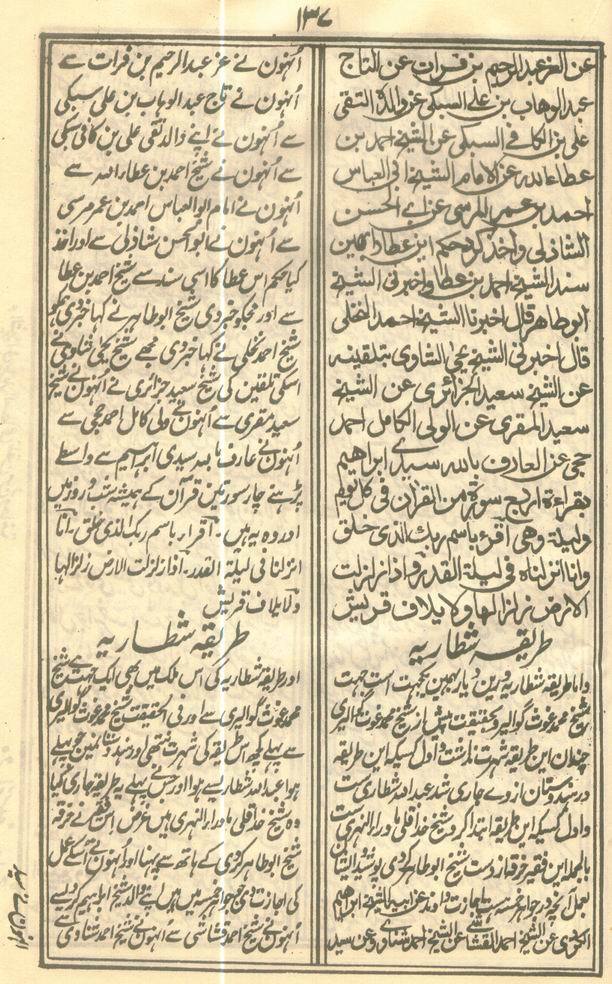 ۱۳۷
عن العز عبد الرحيم بن فرات عن التاج
عبد الوهاب بن علي السبكي عن والده التقى
علي بن الكافي السبكي عن الشيخ احمد بن
عطاء الله عن الامام الشيخ ابي العباس
احمد بن عمر المرسي عن ابي الحسن
الشاذلي واخذ كردبحكم ابن عطاء
سند الشيخ احمد بن عطا واخبرني الشيخ
ابو طاهر قال اخبرنا الشيخ احمد النخلي
قال اخبرني الشيخ يحيى الشاوى بتلقينه
عن الشيخ سعيد الجزائري عن الشيخ
سعيد المقري عن الولي الكامل احمد
حجي عن العارف بالله سيدى ابراهيم
بقراءة اربع سورة من القران في كل يوم
وليلة وهي اقرء باسم ربك الذى خلق
وانا انزلناه في ليلة القدر واذا زلزلت
الارض زلزالها ولايلاف قريش
طریقہ شطاریہ
واما طریقہ شطاریہ درین دیار بہمین یکجہت است جہت
شیخ محمد غوث گوالیر و بحقیقت پیش از شیخ محمد غوث گوالیری
چندان این طریقہ شہرت نداشت و اول کسیکہ این طریقہ
در ہندوستان از وے جاری شد عبد اللہ شطاری ست
و اول کسیکہ این طریقہ ابتدا کرد شیخ خدا قلی ماوراء النہری ست
بالجملہ این فقیر خرقہ از دست شیخ ابو طاہر کردی پوشید و ایشان
بعمل آنچہ در جواہر خمسہ ست اجازت دادند عن ابیہ الشیخ ابراہیم
الکردی عن الشیخ احمد القشاشی عن الشیخ احمد شناوی و عن سید
اُنہون نے عز عبد الرحیم بن فرات سے
اُنہون نے تاج عبد الوہاب بن علی سبکی
سے اُنہون نے اپنے والد تقی علی بن کافی سبکی
سے اُنہون نے شیخ احمد بن عطاء اللہ سے
اُنہون نے امام ابو العباس احمد بن عمر مرسی
سے اُنہون نے ابو الحسن شاذلی سے اور اخذ
کیا حکم اس عطا کا اسی سند سے شیخ احمد بن عطا
سے اور مجکو خبر دی شیخ ابو طاہر نے کہا خبر دی ہمکو
شیخ احمد نخلی نے کہا خبر دی مجھے شیخ یحیی شاوی نے
اسکی تلقین کی شیخ سعید جزائری نے اُنہون نے شیخ
سعید مقری سے اُنہون نے ولی کامل احمد حجی سے
اُنہون نے عارف باللہ سیدی ابراہیم سے واسطے
پڑہنے چار سورتین قرآن کے ہمیشہ شب و روز مین
اور وہ یہ ہین۔ اقراء باسم ربک الذی خلق۔ انا
انزلنا فی لیلۃ القدر۔ اذا زلزلت الارض زلزالہا
ولایلاف قریش
طریقہ شطاریہ
اور طریقہ شطاریہ کی اس ملک مین بھی ایک جہت ہے شیخ
محمد غوث گوالیری سے اور فی الحقیقت شیخ محمد غوث گوالیری
سے پہلے کچھ اس طریقہ کی شہرت نتھی اور ہندوستان مین جو پہلے
ہوا عبد اللہ شطار سے ہوا اور جس نے پہلے یہ طریقہ جاری کیا
وہ شیخ خدا قلی ماوراء النہری ہین غرض اس فقیر نے خرقہ
شیخ ابو طاہر کردی کے ہاتھ سے پہنا اور اُنہون نے اسکے عمل
کی اجازت دی جو جواہر خمسہ مین ہین اپنے والد شیخ ابراہیم کردی سے
اُنہون نے شیخ احمد قشاشی سے اُنہون نے شیخ احمد شناوی سے
اُنہون نے سید